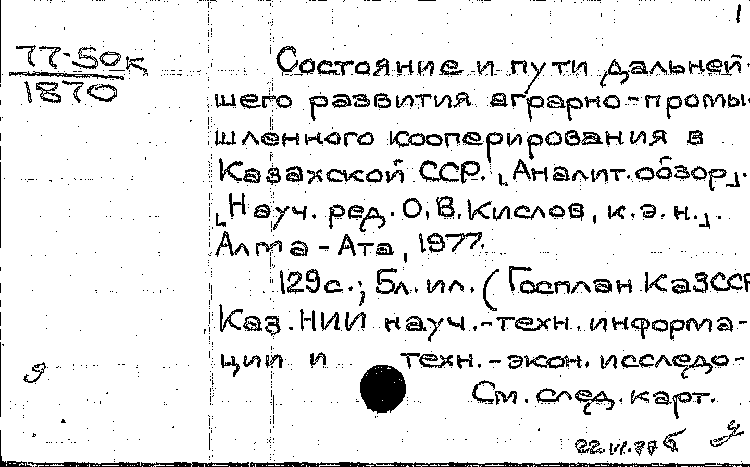 1
77-50к
1870
Состояние и пути дальней-
шего развития аграрно-промы-
шленного кооперирования в
Казахской ССР. [Аналит.обзор].
[Науч. ред. О.В.Кислов, к.э.н.].
Алма-Ата, 1977.
129с.; Бл. ил. (Госплан КазССР
Каз.НИИ науч.-техн. информа-
ции и техн.-экон. исследо-
См. след. карт.
9